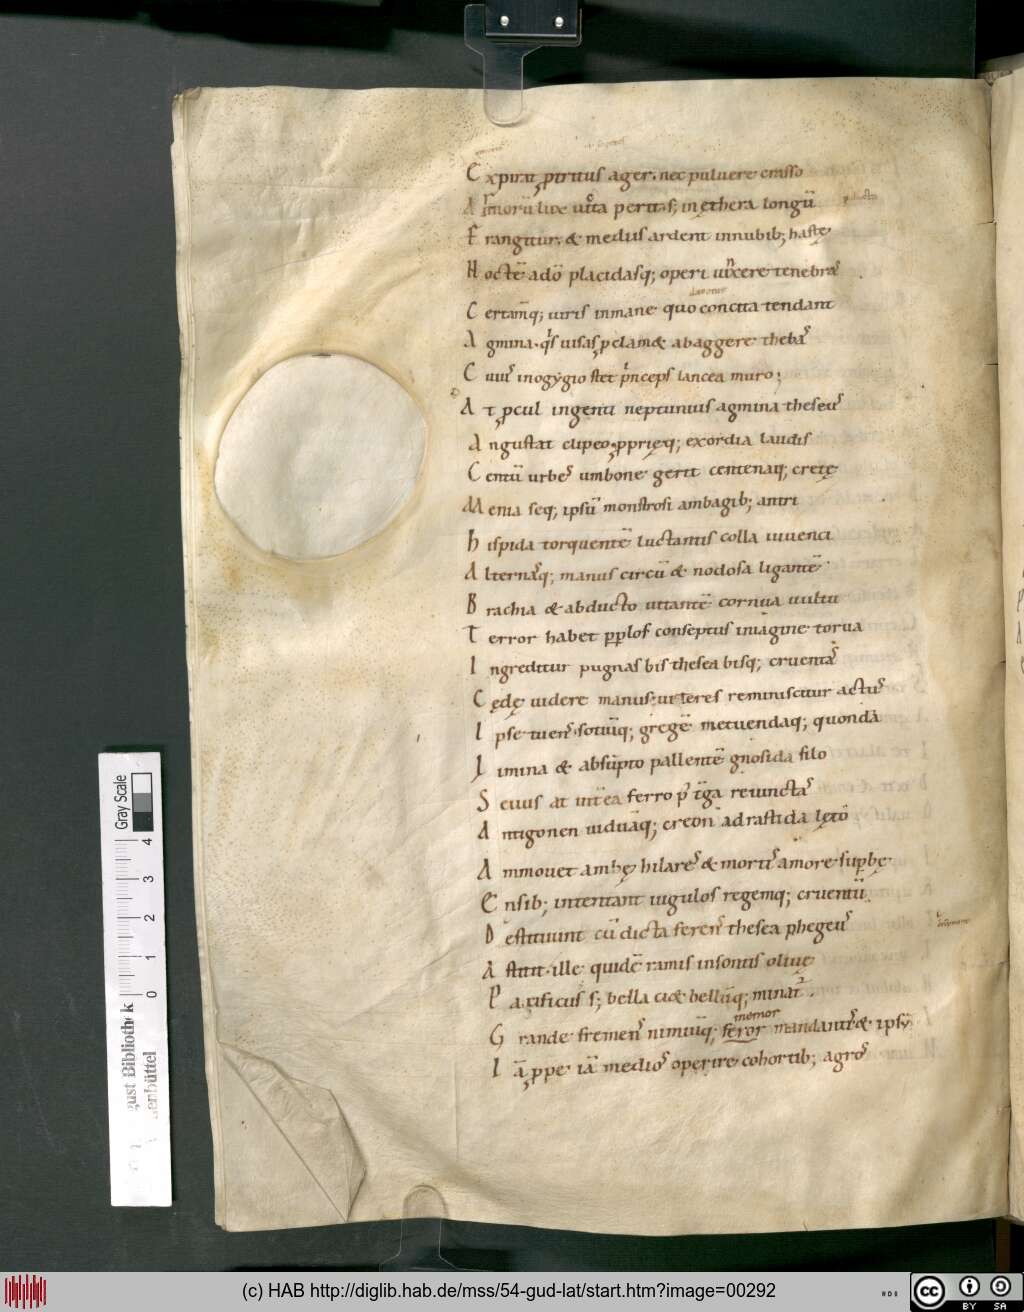 Expirat ꝓtritus ager. nec puluere crasso
Armorū lux uicta perit. s; in ęthera longū
Frangitur; & medus ardent in nubib; hastę
Noctē adō placidasq; operi iunxere tenebras
Certamq; uiris inmane quo concita tendant
Agmina. qͥs uisas ꝓclam& abaggere thebas
Cuius in ogẏgio stet pͥnceps lancea muro;
At ꝓcul ingenti neptunius agmina theseus
Angustat clipeo. ꝓprięq; exordia laudis
Centū urbes umbone gerit centenaq; cretę
Menia seq; ipsū monstrosi ambagib; antri
Hispida torquentē luctantis colla iuuenci
Alternasq; manus circū & nodosa ligantē
Brachia & abducto uitantē cornua uultu
Terror habet pplos conseptus imagine torua
Ingreditur pugnas bis thesea bisq; cruentas
Cędę uidere manus; ueteres reminiscitur actus
Ipse tuens. sotiūq; gregē metuendaq; quondā
Limina & absūpto pallentē gnosida filo
Seuus at int̄ea ferro pͦ t̄ga reiunctas
Antigonen uiduāq; creon adrastida lęto
Ammouet ambę hilares & mortis amore supbę
Ensib; intentant iugulos regemq; cruentū
Destituunt cū dicta ferens thesea phegeus
Astitit. ille quidē ramis insontis oliuę
Pacificus s; bella ci& bellūq; minat͛.
Grande fremens nimiūq; feror mandantis & ipsū
memor
Iā ꝓpe iā medios operire cohortib; agros
Gray Scale
4
3
2
1
0
(c) HAB http://diglib.hab.de/mss/54-gud-lat/start.htm?image=00292
cc
BY
SA